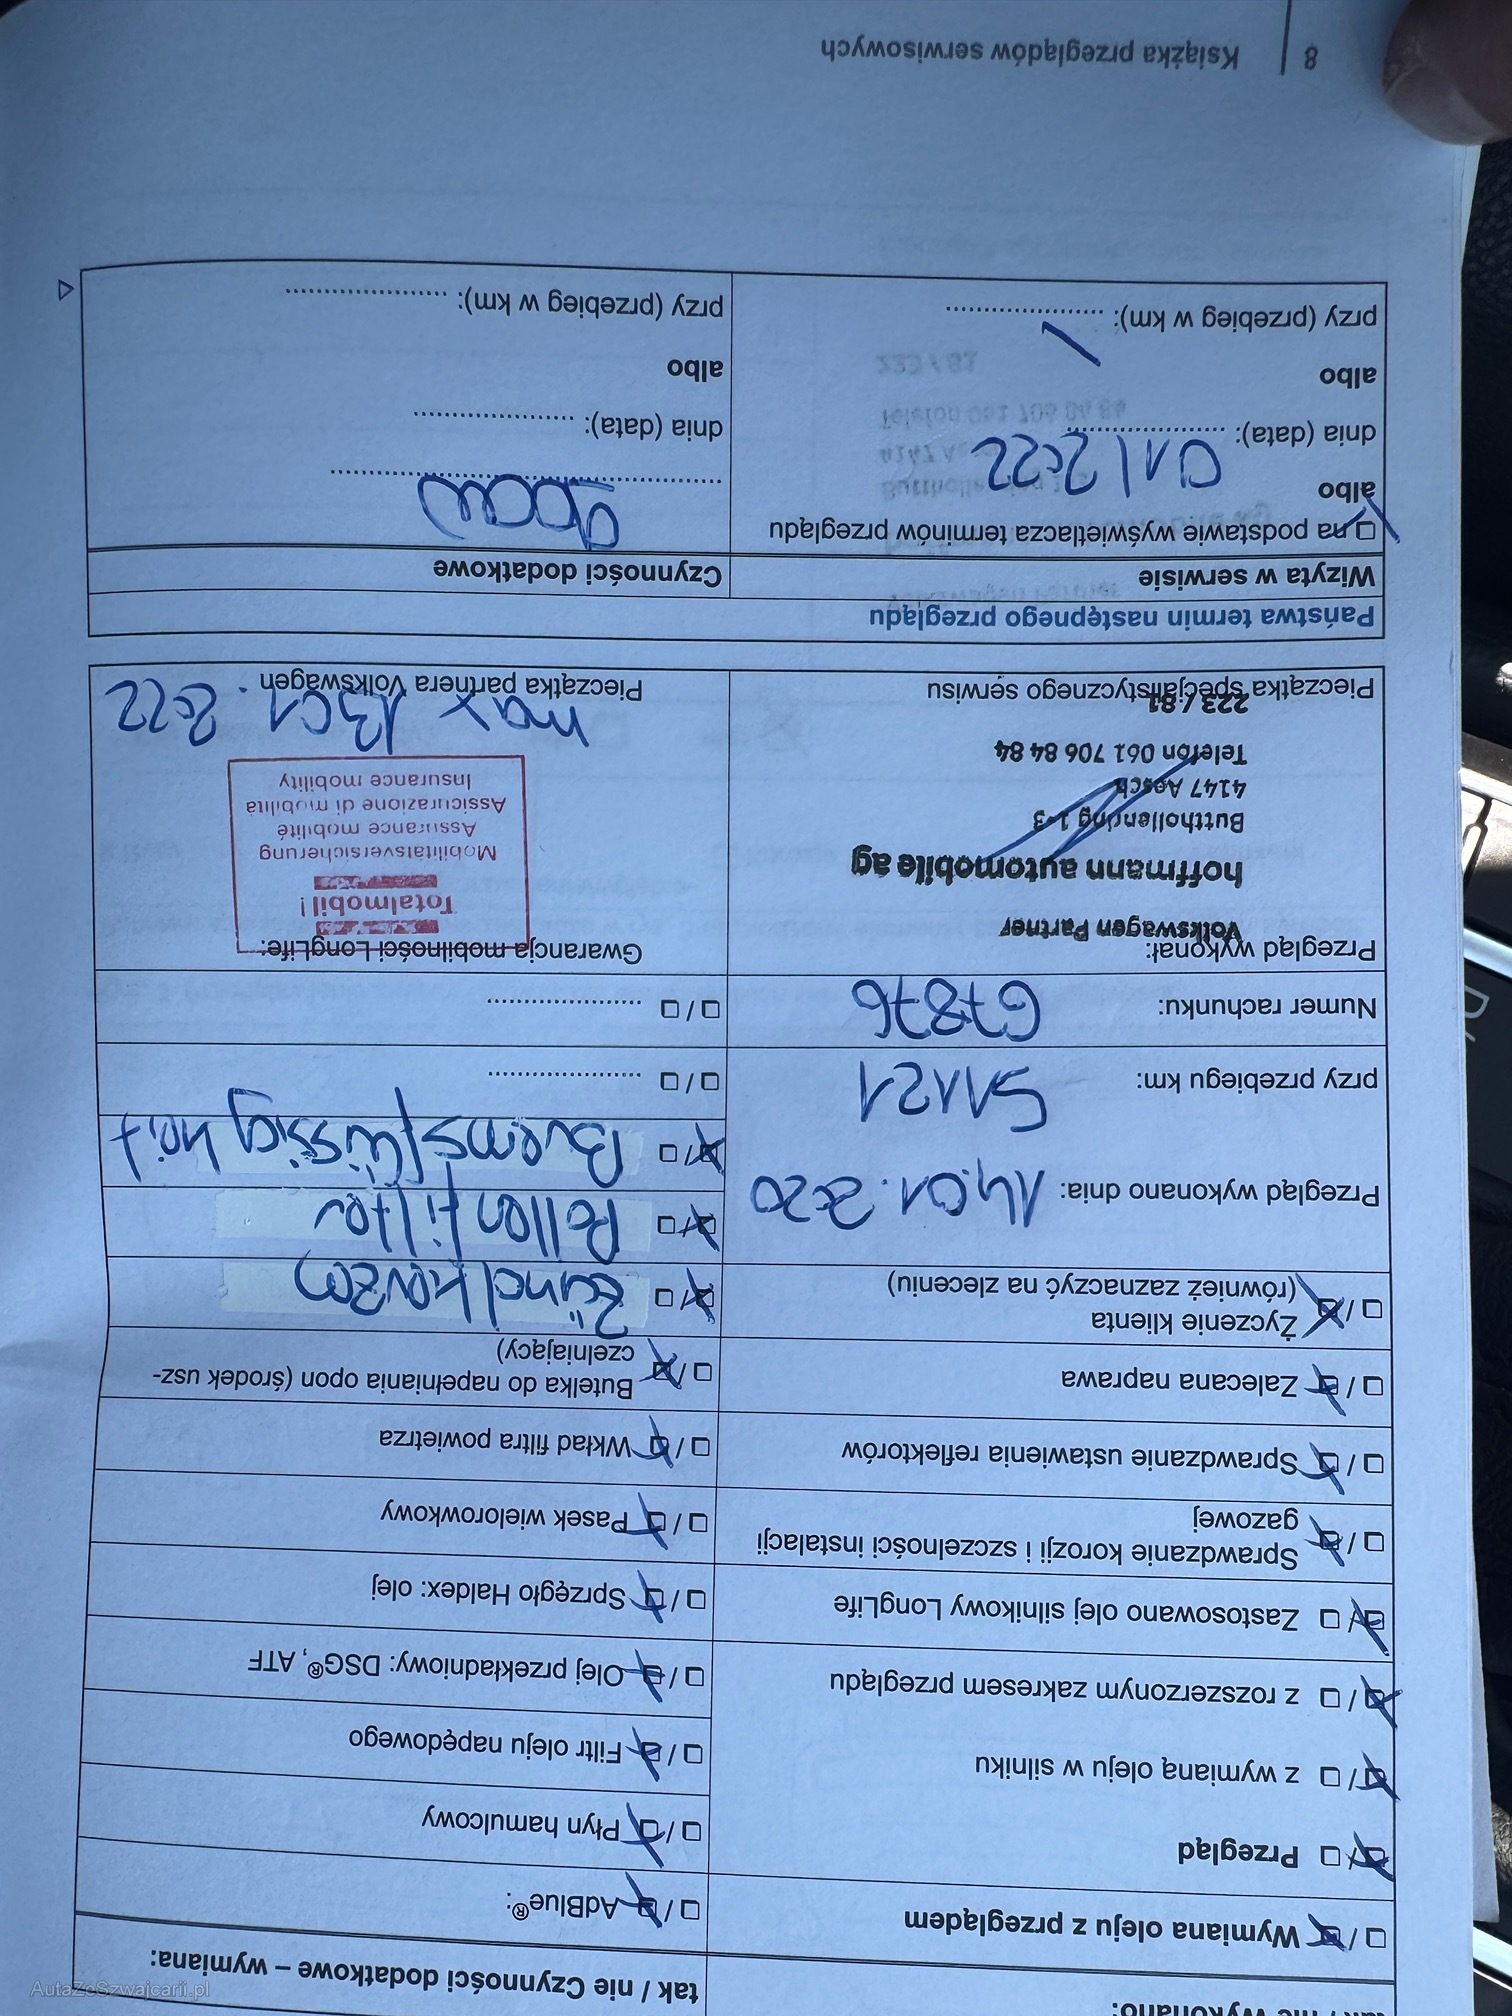 tak / nie Czynności dodatkowe – wymiana:
Wymiana oleju z przeglądem
Przegląd
z wymianą oleju w silniku
z rozszerzonym zakresem przeglądu
Zastosowano olej silnikowy LongLife
Sprawdzanie korozji i szczelności instalacji
gazowej
Sprawdzanie ustawienia reflektorów
Zalecana naprawa
Życzenie klienta
(również zaznaczyć na zleceniu)
Przegląd wykonano dnia: 14.01.2020
przy przebiegu km: 51121
Numer rachunku: 67876
Przegląd wykonał:
Volkswagen Partner
hoffmann automobile ag
Butthollenring 1-3
4147 Aesch
Telefon 061 706 84 84
223 / 81
Pieczątka specjalistycznego serwisu
AdBlue®:
Płyn hamulcowy
Filtr oleju napędowego
Olej przekładniowy: DSG®, ATF
Sprzęgło Haldex: olej
Pasek wielorowkowy
Wkład filtra powietrza
Butelka do napełniania opon (środek usz-
czelniający)
Zündkerzen
Pollenfilter
Bremsflüssigkeit
Gwarancja mobilności LongLife:
Totalmobil!
Mobilitätsversicherung
Assurance mobilité
Assicurazione di mobilità
Insurance mobility
max 13 01. 2022
Pieczątka partnera Volkswagen
Państwa termin następnego przeglądu
Wizyta w serwisie
na podstawie wyświetlacza terminów przeglądu
albo
dnia (data): 01/2022
albo
przy (przebieg w km):
Czynności dodatkowe
dnia (data):
albo
przy (przebieg w km):
8 Książka przeglądów serwisowych
AutaZeSzwajcarii.pl